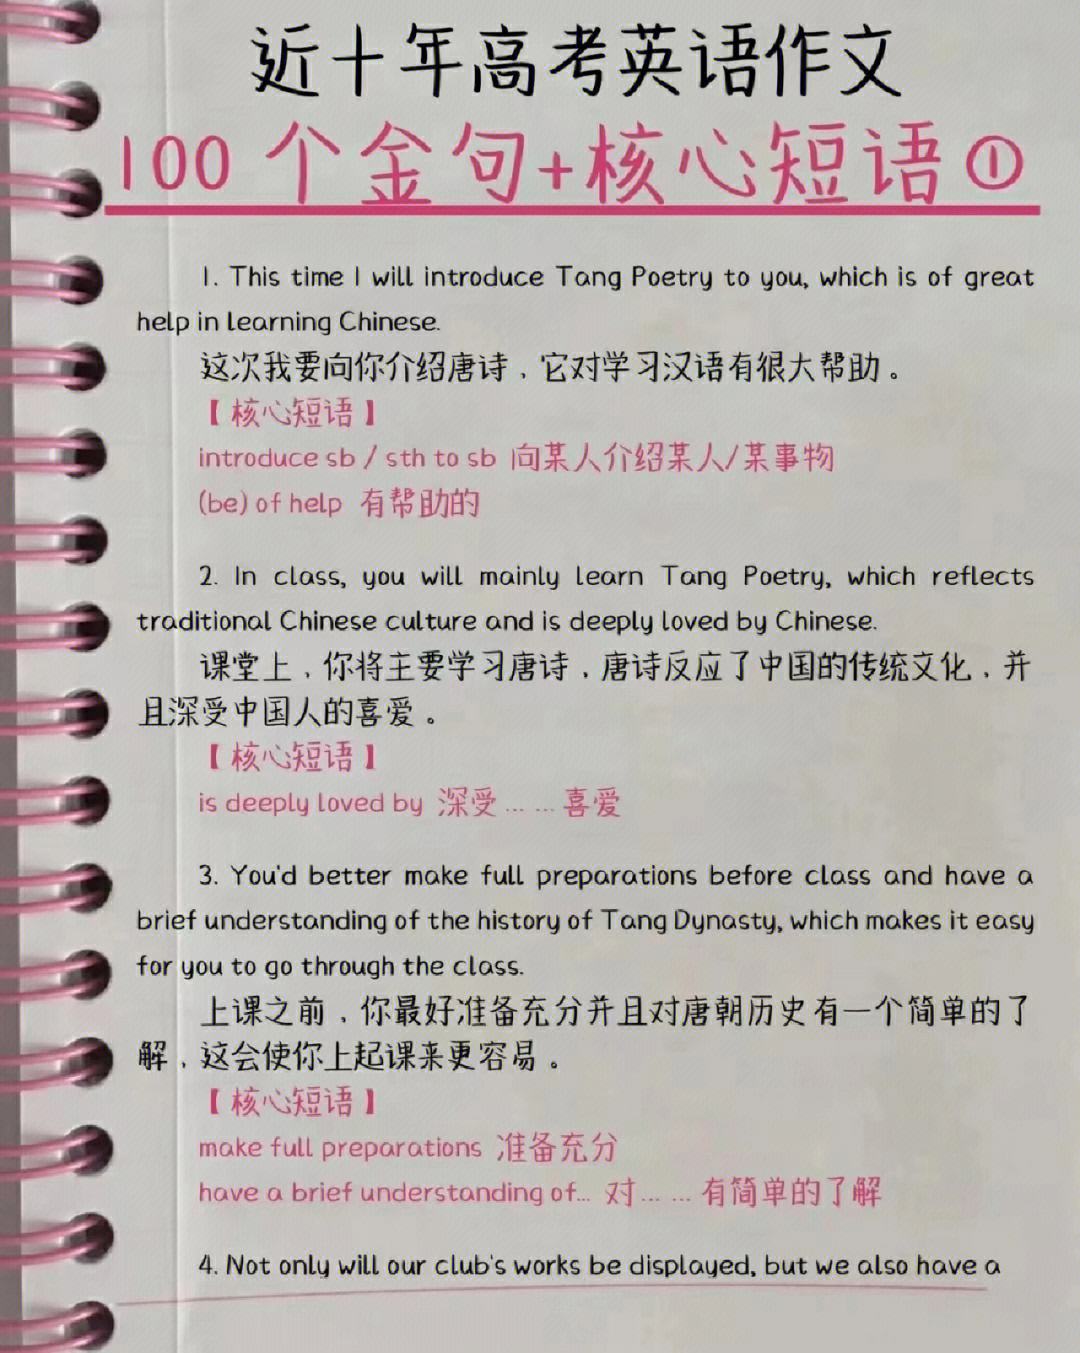 近十年高考英语作文
100个金句+核心短语①
1. This time I will introduce Tang Poetry to you, which is of great
help in learning Chinese.
这次我要向你介绍唐诗，它对学习汉语有很大帮助。
【核心短语】
introduce sb / sth to sb 向某人介绍某人/某事物
(be) of help 有帮助的
2. In class, you will mainly learn Tang Poetry, which reflects
traditional Chinese culture and is deeply loved by Chinese.
课堂上，你将主要学习唐诗，唐诗反应了中国的传统文化，并
且深受中国人的喜爱。
【核心短语】
is deeply loved by 深受……喜爱
3. You'd better make full preparations before class and have a
brief understanding of the history of Tang Dynasty, which makes it easy
for you to go through the class.
上课之前，你最好准备充分并且对唐朝历史有一个简单的了
解，这会使你上起课来更容易。
【核心短语】
make full preparations 准备充分
have a brief understanding of... 对……有简单的了解
4. Not only will our club's works be displayed, but we also have a